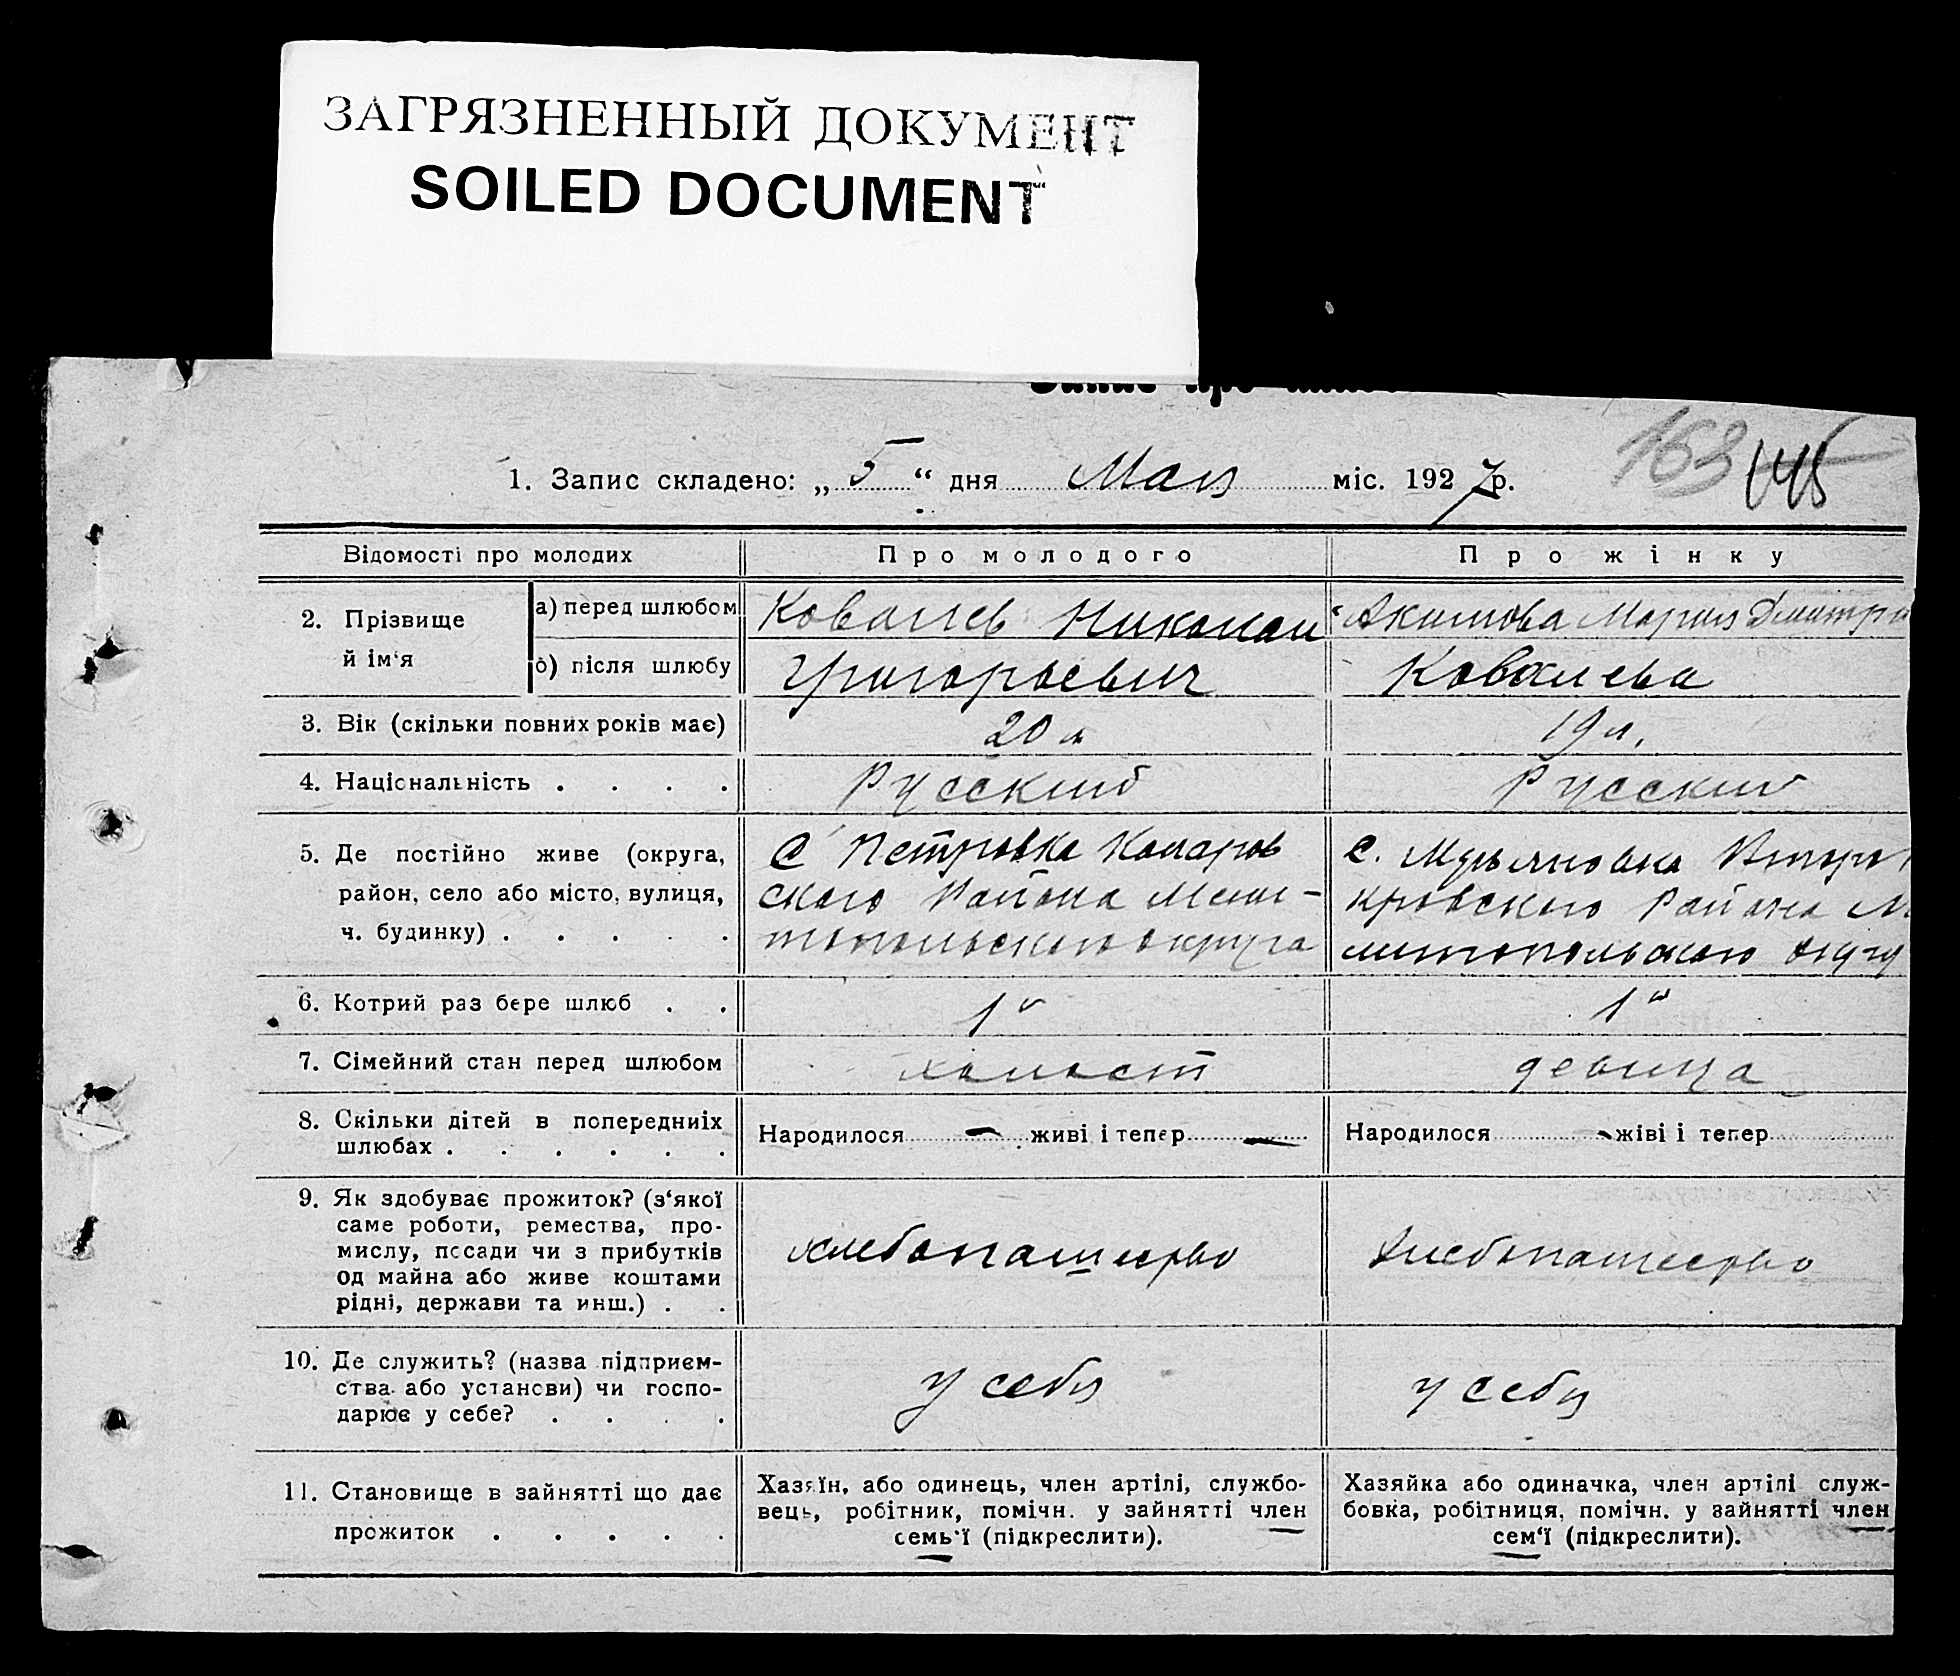 ЗАГРЯЗНЕННЫЙ ДОКУМЕНТ
SOILED DOCUMENT
163 145
1. Запис складено: „ 5 “ дня Мая міс. 1927 р.
Відомості про молодих Про молодого Про жінку
2. Прізвище й ім‘я
а) перед шлюбом Ковалев Николай Акимова Мария Дмитри
б) після шлюбу Григорьевич Ковалева
3. Вік (скільки повних років має) 20 л 19 л.
4. Національність . . . . Русский Русский
5. Де постійно живе (округа, С Петровка Комаров с. Марьяновка
район, село або місто, вулиця, ского Района Мели- кровского Района М
ч. будинку) . . . . . топольского округа литопольского округ
6. Котрий раз бере шлюб . . 1й 1й
7. Сімейний стан перед шлюбом холост девица
8. Скільки дітей в попередниіх
шлюбах . . . . . . Народилося — живі і тепер — Народилося - жіві і тепер
9. Як здобуває прожиток? (з‘якої
саме роботи, ремества, про-
мислу, посади чи з прибутків хлебопашество хлебопашество
од майна або живе коштами
рідні, держави та инш.) . .
10. Де служить? (назва підприєм-
ства або установи) чи госпо- у себя у себя
дарює у себе? . . . .
11. Становище в зайнятті що дає
прожиток . . . . .
Хазяїн, або одинець, член артілі, службо-
вець, робітник, помічн. у зайнятті член
семь'ї (підкреслити).
Хазяйка або одиначка, член артілі служ-
бовка, робітниця, помічн. у зайнятті член
сем‘ї (підкреслити).